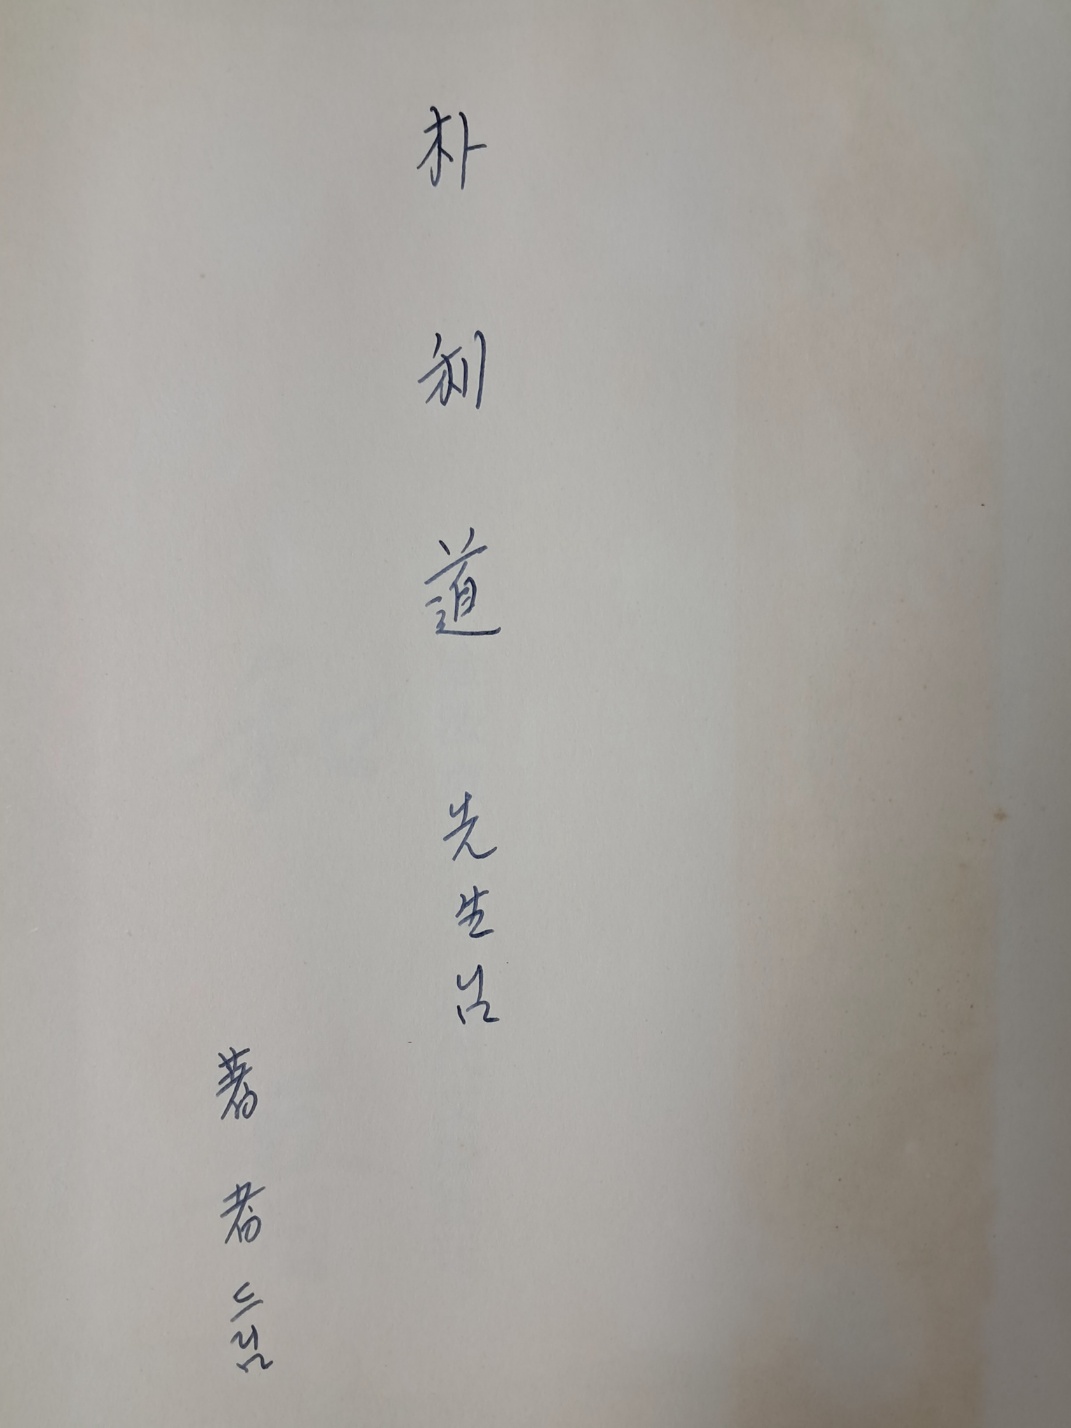 朴利道 先生님
著者 드림